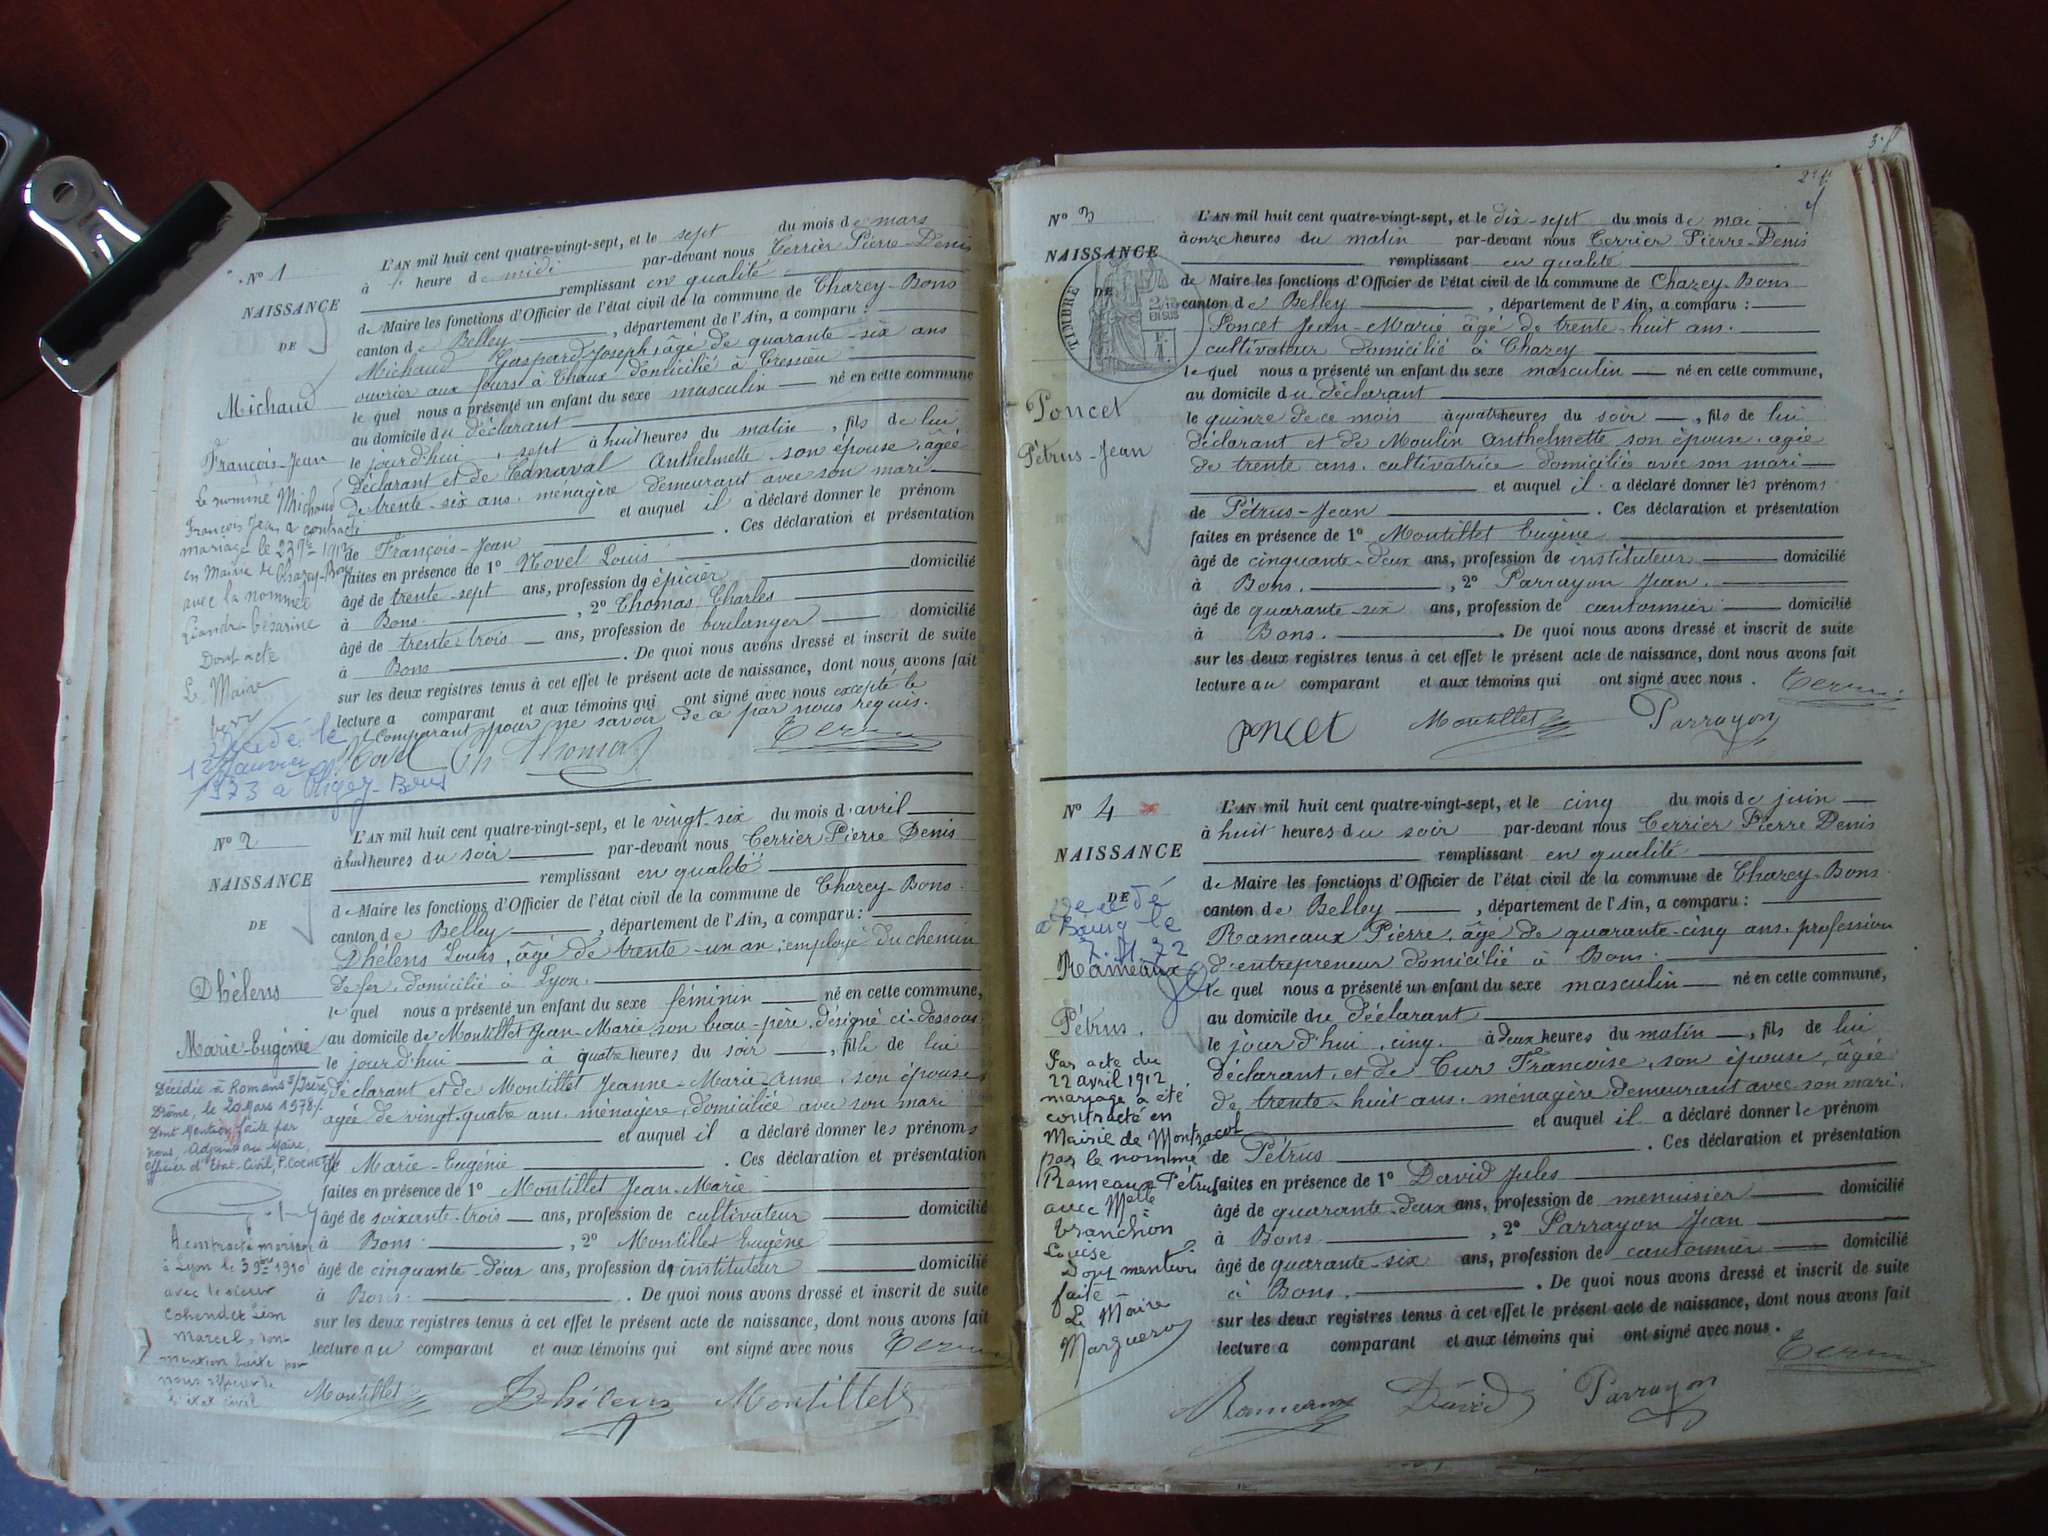 N° 1
NAISSANCE
DE
Michaud
François-Jean
Le nommé Michaud
François Jean a contracté
mariage le 23 1912
en Mairie de Chazey-Bons
avec la nommée
Césarine
Dont acte
Le Maire
décédé le
12 Janvier
1973 à Chazey-Bons
L'AN mil huit cent quatre-vingt-sept, et le sept du mois de mars
à heure de midi par-devant nous Terrier Pierre-Denis
remplissant en qualité
de Maire les fonctions d'Officier de l'état civil de la commune de Chazey-Bons
canton de Belley, département de l'Ain, a comparu :
Michaud Gaspard Joseph, âgé de quarante-six ans
ouvrier aux fours à Chaux domicilié à Cressieu
le quel nous a présenté un enfant du sexe masculin né en cette commune
au domicile du déclarant
le jourd'hui, sept à huit heures du matin, fils de lui
déclarant et de Anthelmette son épouse, âgée
de trente-six ans. ménagère demeurant avec son mari
et auquel il a déclaré donner le prénom
de François-Jean. Ces déclaration et présentation
faites en présence de 1° Novel Louis domicilié
âgé de trente-sept ans, profession de épicier
à Bons, 2° Thomas Charles domicilié
âgé de trente-trois ans, profession de boulanger
à Bons. De quoi nous avons dressé et inscrit de suite
sur les deux registres tenus à cet effet le présent acte de naissance, dont nous avons fait
lecture a comparant et aux témoins qui ont signé avec nous excepté le
comparant pour ne savoir de ce par nous requis.
Novel Ch Thomas Terrier
N° 2
NAISSANCE
DE
Dhélens
Marie-Eugénie
Décédée à Romans s/Isère,
Drôme, le 20 Mars 1978.
Dont Mention faite par
nous, Adjoint au Maire,
Officier d'Etat-Civil,
A contracté mariage
à Lyon le 3 1910
avec le sieur
Cohendet Léon
Marcel, dont
mention faite par
nous officier de
l'état civil
L'AN mil huit cent quatre-vingt-sept, et le vingt-six du mois d'avril
à huit heures du soir par-devant nous Terrier Pierre Denis
remplissant en qualité
de Maire les fonctions d'Officier de l'état civil de la commune de Chazey-Bons
canton de Belley, département de l'Ain, a comparu :
Dhélens Louis, âgé de trente-un an, employé du chemin
de fer, domicilié à Lyon.
le quel nous a présenté un enfant du sexe féminin né en cette commune,
au domicile de Montillet Jean-Marie son beau-père, désigné ci-dessous
le jourd'hui à quatre heures du soir, fille de lui
déclarant et de Montillet Jeanne-Marie-Anne, son épouse
agée de vingt-quatre ans. ménagère, domiciliée avec son mari
et auquel il a déclaré donner les prénoms
de Marie-Eugénie. Ces déclaration et présentation
faites en présence de 1° Montillet Jean-Marie
âgé de soixante-trois ans, profession de cultivateur domicilié
à Bons, 2° Montillet Eugène
âgé de cinquante-deux ans, profession de instituteur domicilié
à Bons. De quoi nous avons dressé et inscrit de suite
sur les deux registres tenus à cet effet le présent acte de naissance, dont nous avons fait
lecture au comparant et aux témoins qui ont signé avec nous Terrier
Montillet Dhélens Montillet
2
N° 3
NAISSANCE
DE
TIMBRE
2/10
EN SUS
Poncet
Pétrus-Jean
L'AN mil huit cent quatre-vingt-sept, et le dix-sept du mois de mai
à onze heures du matin par-devant nous Terrier Pierre-Denis
remplissant en qualité
de Maire les fonctions d'Officier de l'état civil de la commune de Chazey-Bons
canton de Belley, département de l'Ain, a comparu :
Poncet Jean-Marie âgé de trente-huit ans.
cultivateur domicilié à Chazey
le quel nous a présenté un enfant du sexe masculin né en cette commune,
au domicile du déclarant
le quinze de ce mois à quatre heures du soir, fils de lui
déclarant et de Moulin Anthelmette son épouse, agée
de trente ans. cultivatrice domiciliée avec son mari
et auquel il a déclaré donner les prénoms
de Pétrus-Jean. Ces déclaration et présentation
faites en présence de 1° Montillet Eugène
âgé de cinquante-deux ans, profession de instituteur domicilié
à Bons., 2° Parrayon Jean.
âgé de quarante-six ans, profession de cantonnier domicilié
à Bons. De quoi nous avons dressé et inscrit de suite
sur les deux registres tenus à cet effet le présent acte de naissance, dont nous avons fait
lecture au comparant et aux témoins qui ont signé avec nous. Terrier
Poncet Montillet Parrayon
N° 4
NAISSANCE
DE
décédé
à Bourg le
Rameaux
Pétrus.
Par acte du
22 avril 1912
mariage a été
contracté en
Mairie de Montracol
par le nommé
Rameaux Pétrus
avec Melle
Branchon
Louise
Dont mention
faite
Le Maire
L'AN mil huit cent quatre-vingt-sept, et le cinq du mois de juin
à huit heures du soir par-devant nous Terrier Pierre Denis
remplissant en qualité
de Maire les fonctions d'Officier de l'état civil de la commune de Chazey-Bons
canton de Belley, département de l'Ain, a comparu :
Rameaux Pierre, âgé de quarante-cinq ans, profession
d'entrepreneur domicilié à Bons.
le quel nous a présenté un enfant du sexe masculin né en cette commune,
au domicile du déclarant
le jour d'hui, cinq. à deux heures du matin, fils de lui
déclarant, et de Cur Françoise, son épouse, âgée
de trente-huit ans. ménagère demeurant avec son mari.
et auquel il a déclaré donner le prénom
de Pétrus. Ces déclaration et présentation
faites en présence de 1° David Jules
âgé de quarante-deux ans, profession de menuisier domicilié
à Bons, 2° Parrayon Jean
âgé de quarante-six ans, profession de cantonnier domicilié
à Bons. De quoi nous avons dressé et inscrit de suite
sur les deux registres tenus à cet effet le présent acte de naissance, dont nous avons fait
lecture a comparant et aux témoins qui ont signé avec nous. Terrier
Rameaux David Parrayon